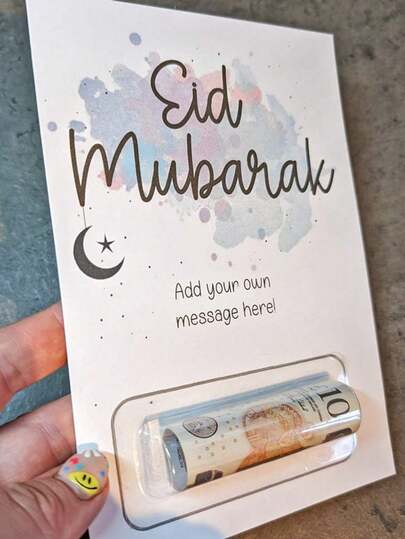 Eid
Mubarak
Add your own
message here!
10